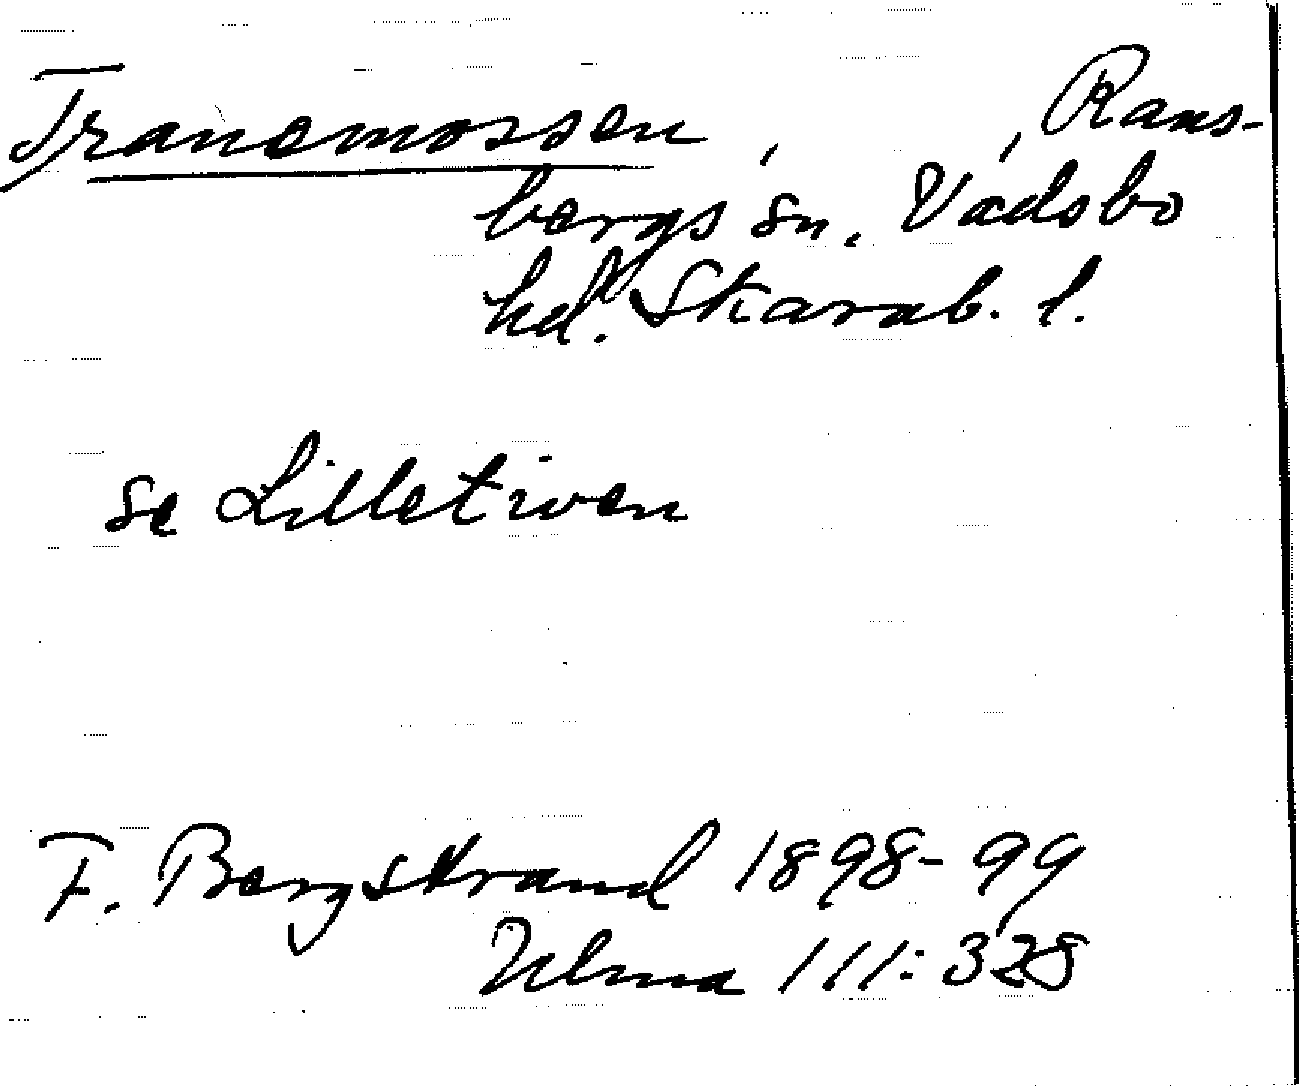 Tranemossen, , Rans-
bergs sn, Vadsbo
hd. Skarab. l.
se Lilletiven
F. Bergstrand 1898-99
Ulma 111:328